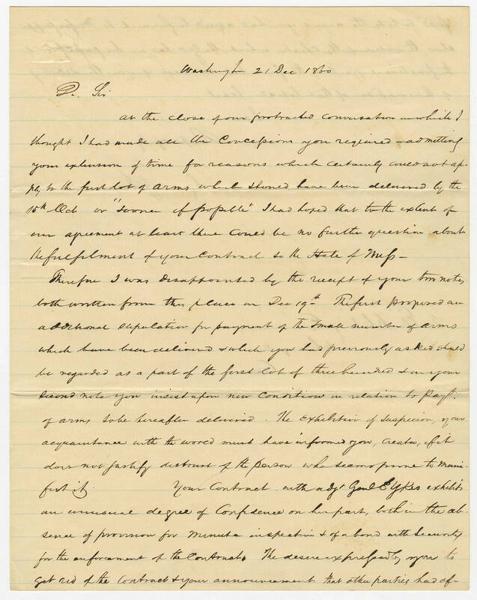 Washington 21 Dec 1860
Dr. Sir
At the close of our protracted conversation in which I
thought I had made all the concessions you required—admitting
your extension of time for reasons which certainly could not ap-
ply to the first lot of arms which should have been delivered by the
15th Oct or "sooner if possible" I had hoped that to the extent of
our agreement at least there could be no further question about
the fulfilment of your contract to the State of Missi—
Therefore I was disappointed by the receipt of your two notes
both written from this place on Dec 19th. The first proposed an
additional stipulation for payment of the small number of arms
which have been delivered & which you had previously asked should
be regarded as a part of the first lot of three hundred & in your
second note you insist upon new conditions in relation to payt.
of arms to be hereafter delivered. The exhibition of suspicion, your
acquaintance with the world must have informed you, creates, if it
does not justify distrust of the person who seems prone to mani-
fest it. Your Contract with adjt Genl Sykes exhibits
an unusual degree of Confidence on his part, both in the ab-
sence of provision for minute inspection & of a bond with Security
for the enforcement of the Contract. The desire expressed by you to
get rid of the Contract & your announcement that other parties had of-